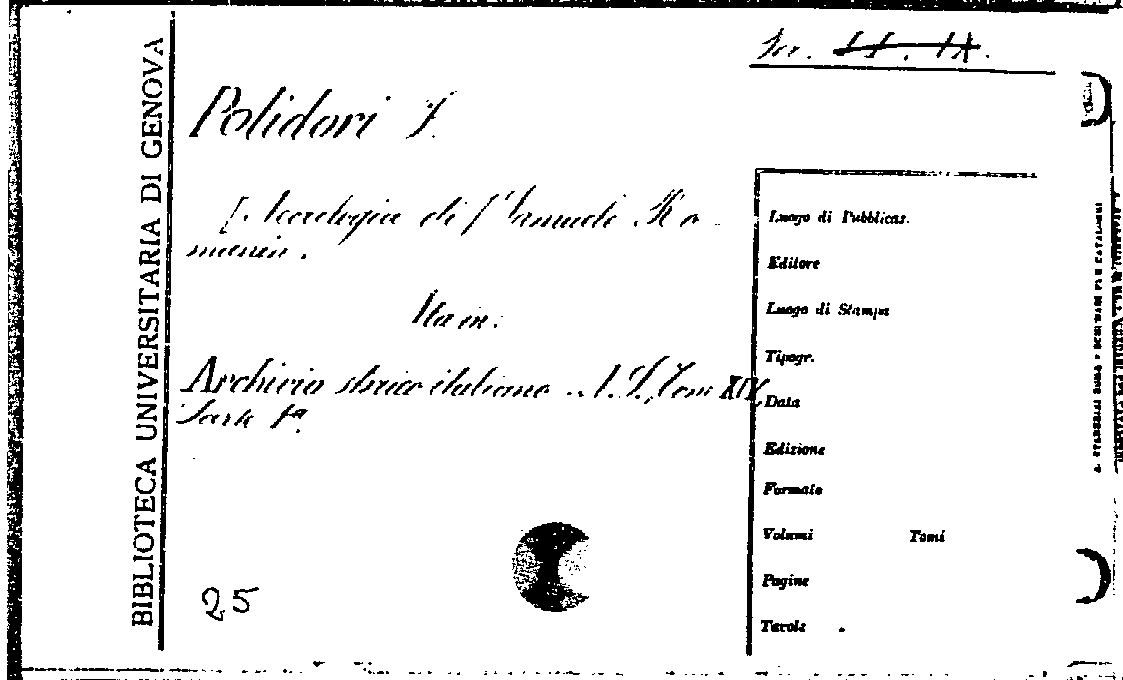 BIBLIOTECA UNIVERSITARIA DI GENOVA
Ser. II. IX.
Polidori F.
[Necrologia di Samuele Ro-
manin.
Sta in:
Archivio storico italiano N. S. Tom XIV,
Parte 1ª
25
Luogo di Pubblicaz.
Editore
Luogo di Stampa
Tipogr.
Data
Edizione
Formato
Volumi Tomi
Pagine
Tavole